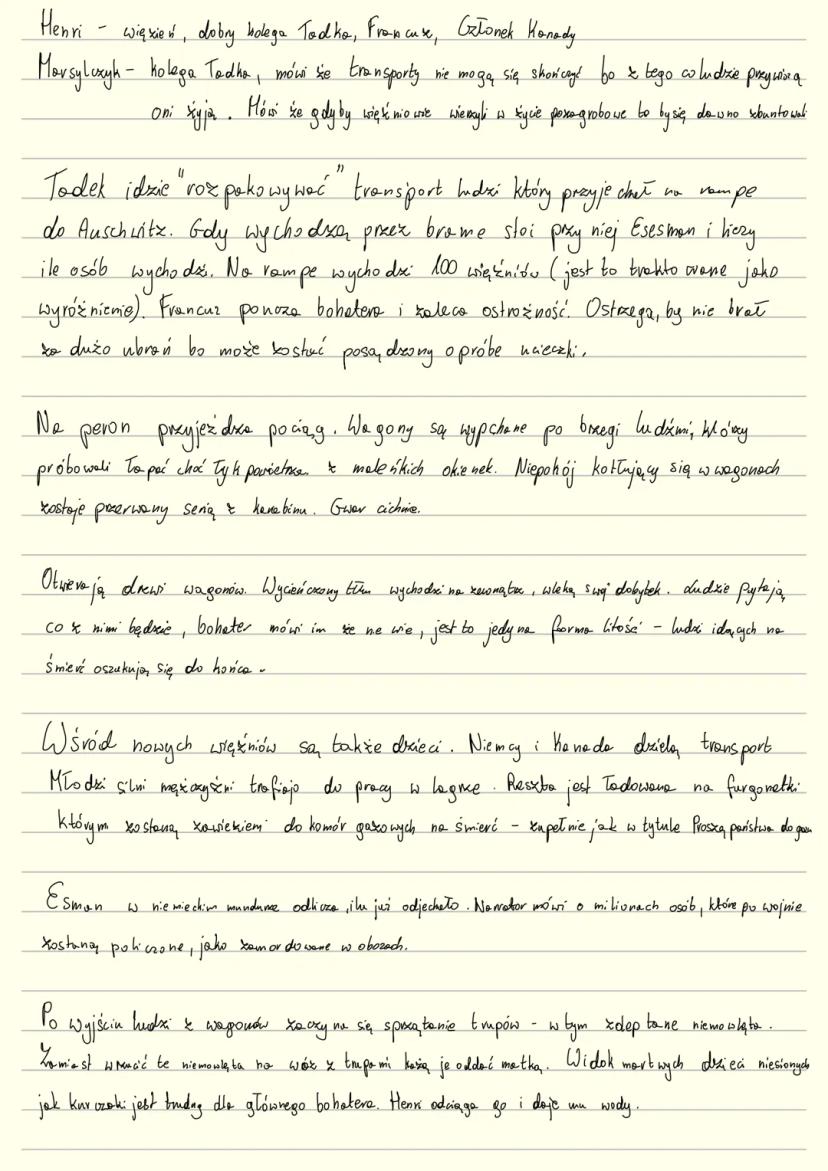 Henri - więzień, dobry kolega Tadka, Francuz, Członek Kanady
Marsylczyk - kolega Tadka, mówi że transporty nie mogą się skończyć bo z tego co ludzie przywiozą
oni żyją. Mówi że gdyby więźniowie wierzyli w życie pozagrobowe to by się dawno zbuntowali
Tadek idzie "rozpakowywać" transport ludzi który przyjechał na rampe
do Auschwitz. Gdy wychodzą przez brame stoi przy niej Esesman i liczy
ile osób wychodzi. Na rampe wychodzi 100 więźniów (jest to traktowane jako
wyróżnienie). Francuz poucza bohatera i zaleca ostrożność. Ostrzega, by nie brał
za dużo ubrań bo może zostać posądzony o próbe ucieczki.
Na peron przyjeżdża pociąg. Wagony są wypchane po brzegi ludźmi, którzy
próbowali łapać choć łyk powietrza z maleńkich okienek. Niepokój kotłujący się w wagonach
zostaje przerwany serią z karabinu. Gwar cichnie.
Otwierają drzwi wagonów. Wycieńczony tłum wychodzi na zewnątrz, wleką swój dobytek. Ludzie pytają,
co z nimi będzie, bohater mówi im że nie wie, jest to jedyna forma litość - ludzi idących na
śmierć oszukują się do końca.
Wśród nowych więźniów są także dzieci. Niemcy i Kanada dzielą transport
Młodzi silni mężczyźni trafiają do pracy w łagrze. Reszta jest ładowana na furgonetki
którym zostaną zawieziemi do komór gazowych na śmierć - zupełnie jak w tytule Proszą państwa do gazu
Esman w niemieckim mundurze odlicza, ilu już odjechało. Narrator mówi o milionach osób, które po wojnie
zostaną policzone, jako zamordowane w obozach.
Po wyjściu ludzi z wagonów zaczyna się sprzątanie trupów - w tym zdeptane niemowlęta.
Zamiast wrzucić te niemowlęta na wóz z trupami każą je oddać matką. Widok martwych dzieci niesionych
jak kurczaki jest trudny dla głównego bohatera. Henri odciąga go i daje mu wody.